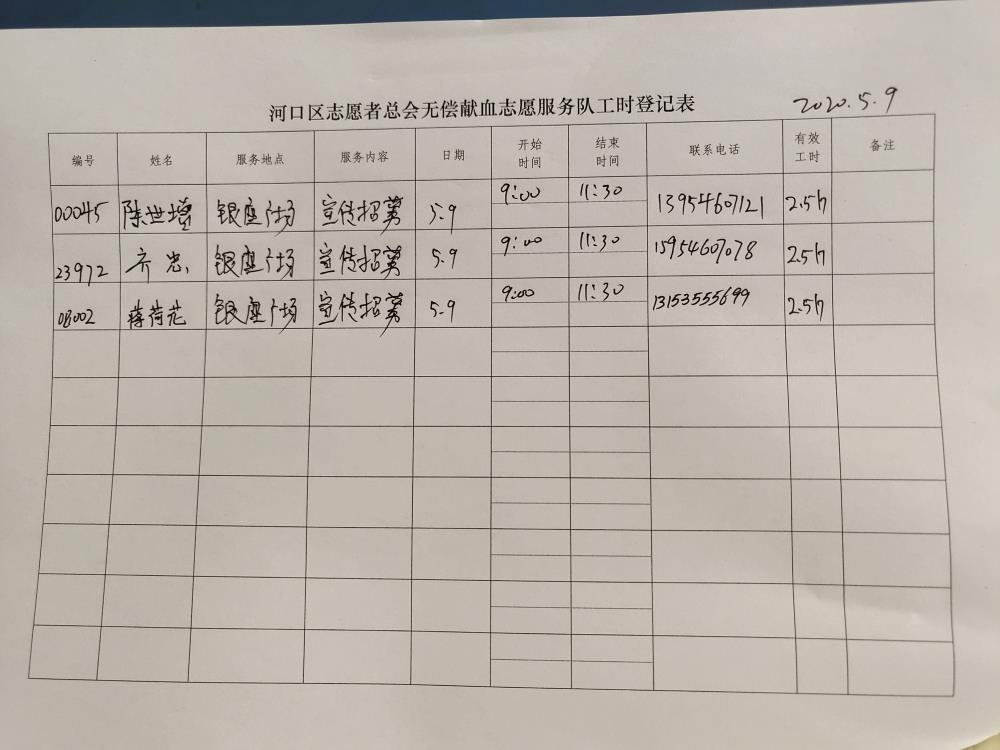 河口区志愿者总会无偿献血志愿服务队工时登记表 2020.5.9
编号 姓名 服务地点 服务内容 日期 开始时间 结束时间 联系电话 有效工时 备注
00045 陈世增 银座广场 宣传招募 5.9 9:00 11:30 13954607121 2.5h
23972 齐忠 银座广场 宣传招募 5.9 9:00 11:30 15954607078 2.5h
08002 蒋荷花 银座广场 宣传招募 5.9 9:00 11:30 13153555699 2.5h